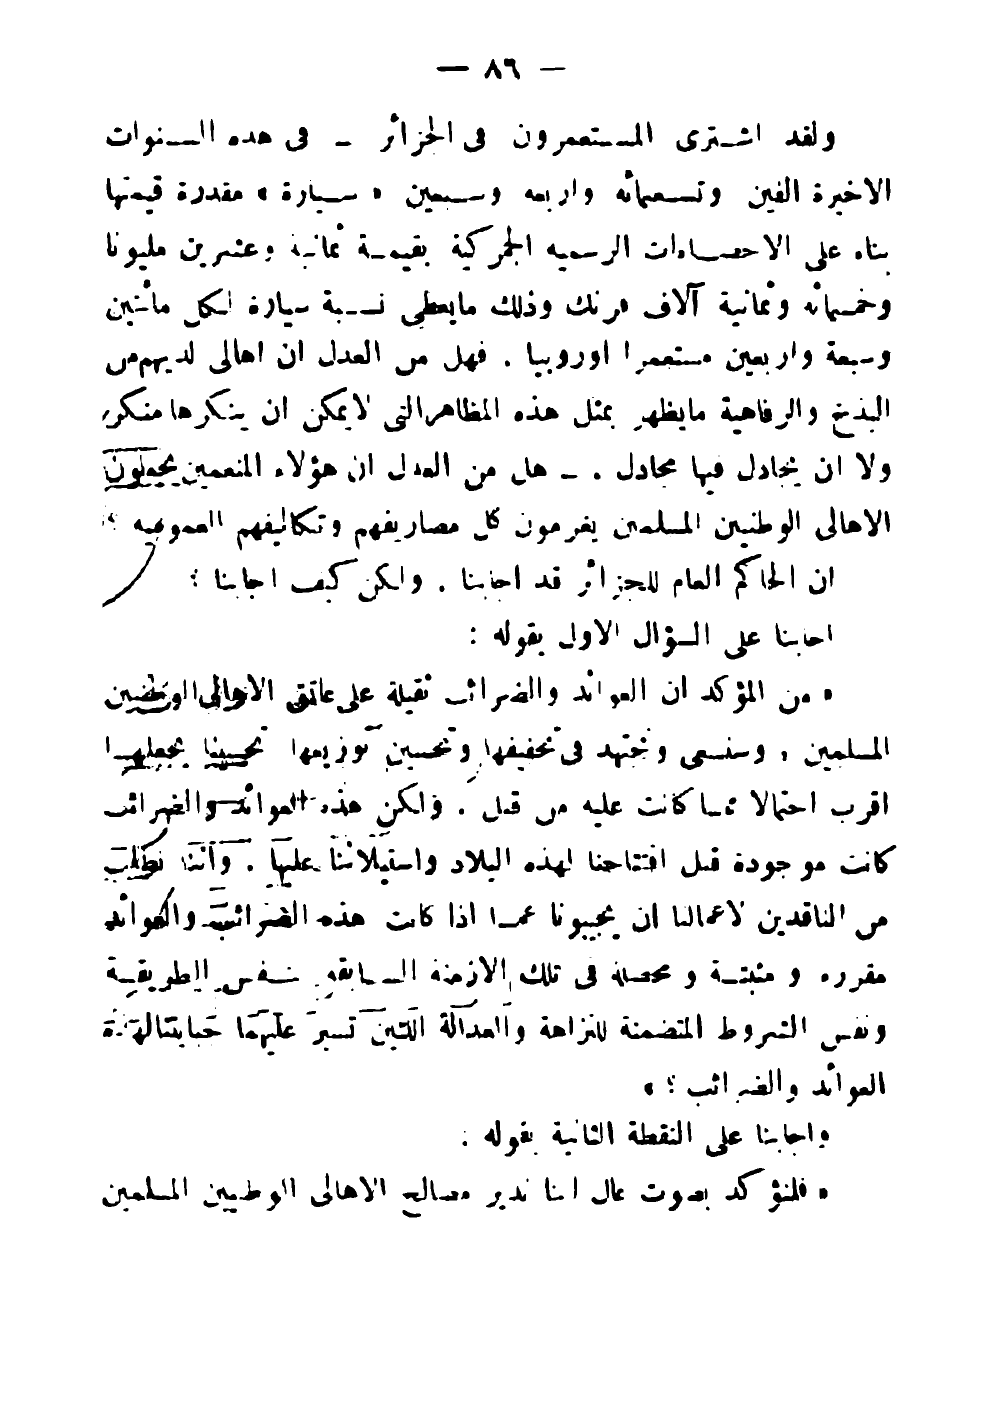 — ٨٦ —
ولقد اشترى المستعمرون فى الجزائر ـ فى هده السنوات
الاخيرة الفين وتسعمائه واربعه وسبعين « سيارة » مقدرة قيمتها
بناء على الاحصاءات الرسميه الجمركية بقيمة ثمانية وعشرين مليونا
وخمسمائه وثمانية آلاف فرنك وذلك مايعطى نسبة سيارة لكل مائتين
وسبعة واربعين مستعمرا اوروبيا . فهل من العدل ان اهالى لديهم من
البذخ والرفاهية مايظهر بمثل هذه المظاهر التى لايمكن ان ينكرها منكر
ولا ان يجادل فيها مجادل . ـ هل من العدل ان هؤلاء المنعمين يجعلون
الاهالى الوطنيين المسلمين يغرمون كل مصاريفهم وتكاليفهم العموميه ؟
ان الحاكم العام للجزائر قد اجابنا . ولكن كيف اجابنا ؟
اجابنا على السؤال الاول بقوله :
« من المؤكد ان العوائد والضرائب ثقيلة على عاتق الاهالى الوطنيين
المسلمين ، وسنسعى ونجتهد فى تخفيفها وتحسين توزيعها تحسينا يجعلها
اقرب احتمالا مما كانت عليه من قبل . ولكن هذه العوائد والضرائب
كانت موجودة قبل افتتاحنا لهذه البلاد واستيلائنا عليها . وأننا نطلب
من الناقدين لاعمالنا ان يجيبونا عما اذا كانت هذه الضرائب والعوائد
مقرره ومثبتة ومحصلة فى تلك الازمنة السابقه بنفس الطريقة
ونفس الشروط المتضمنة للنزاهة والعدالة اللتين تسير عليهما جبايتنا لهذه
العوائد والضرائب ؟ »
واجابنا على النقطة الثانية بقوله :
« فلنؤكد بصوت عال اننا ندير مصالح الاهالى الوطنيين المسلمين